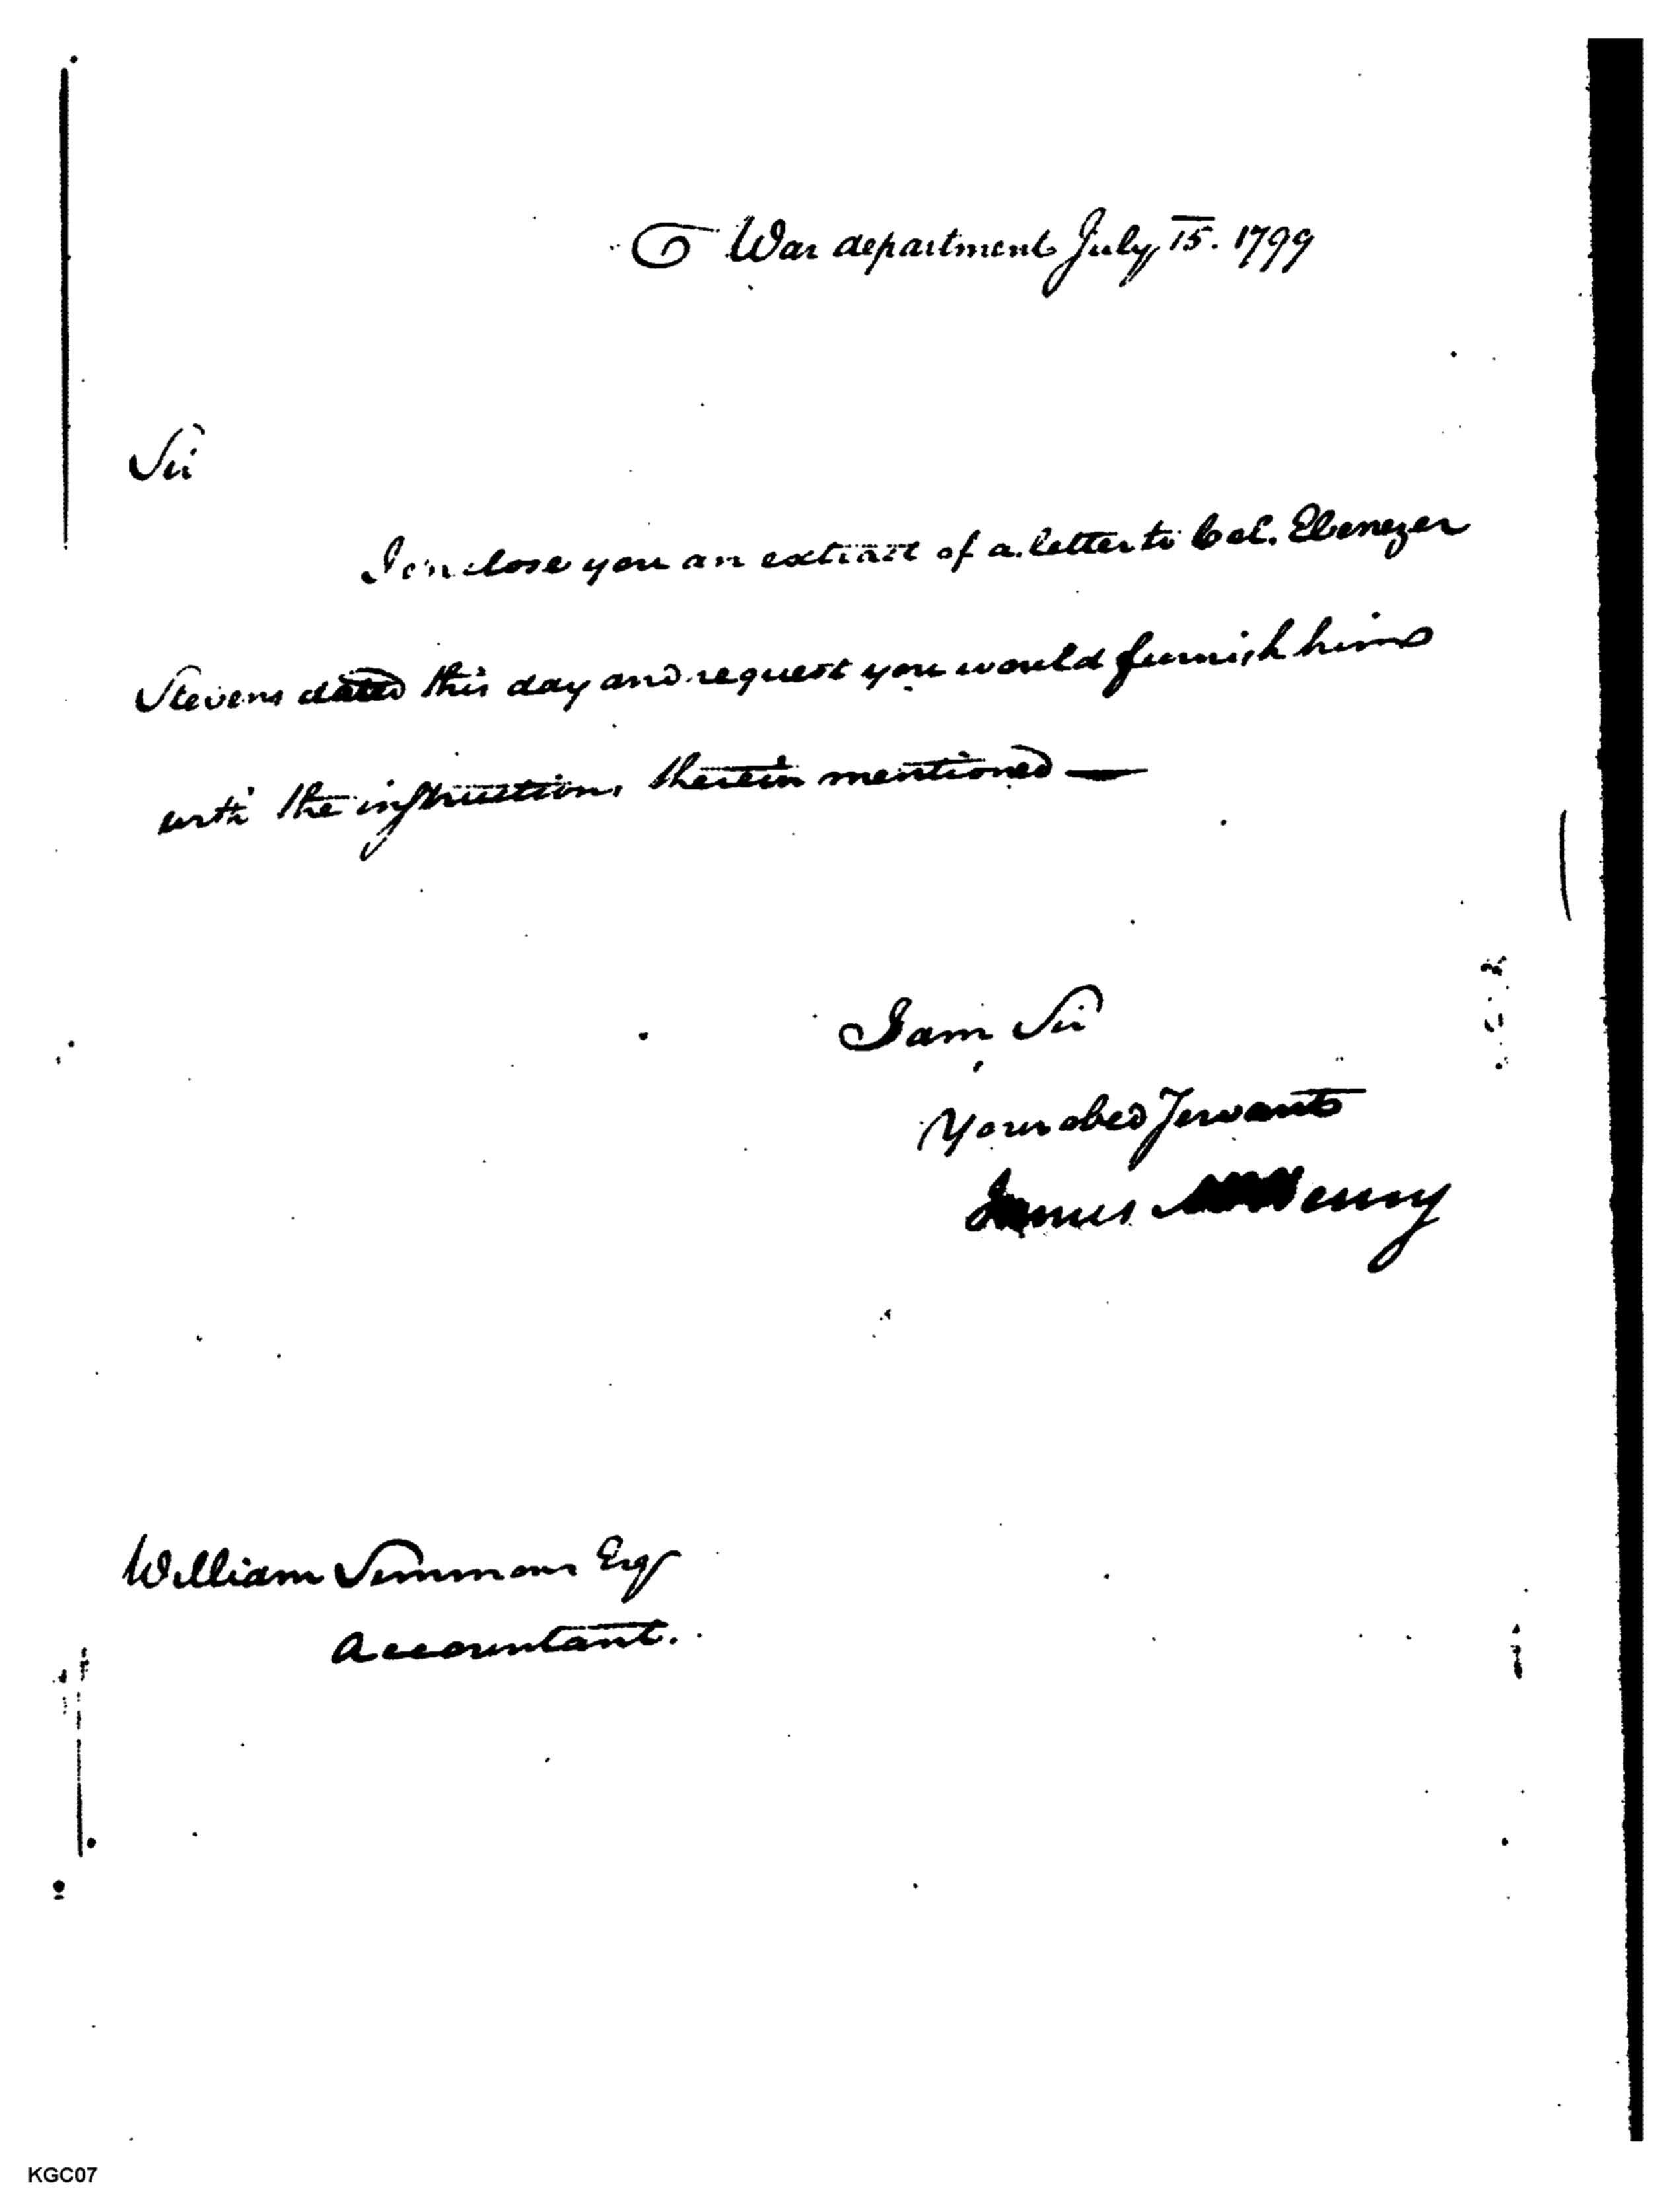 War department July 15. 1799
Sir
I inclose you an extract of a letter to Col. Ebenezer
Stevens dated this day and request you would furnish him
with the instructions therein mentioned —
I am Sir
Your obed Servant
James McHenry
William Simmons Esq
Accountant.
KGC07